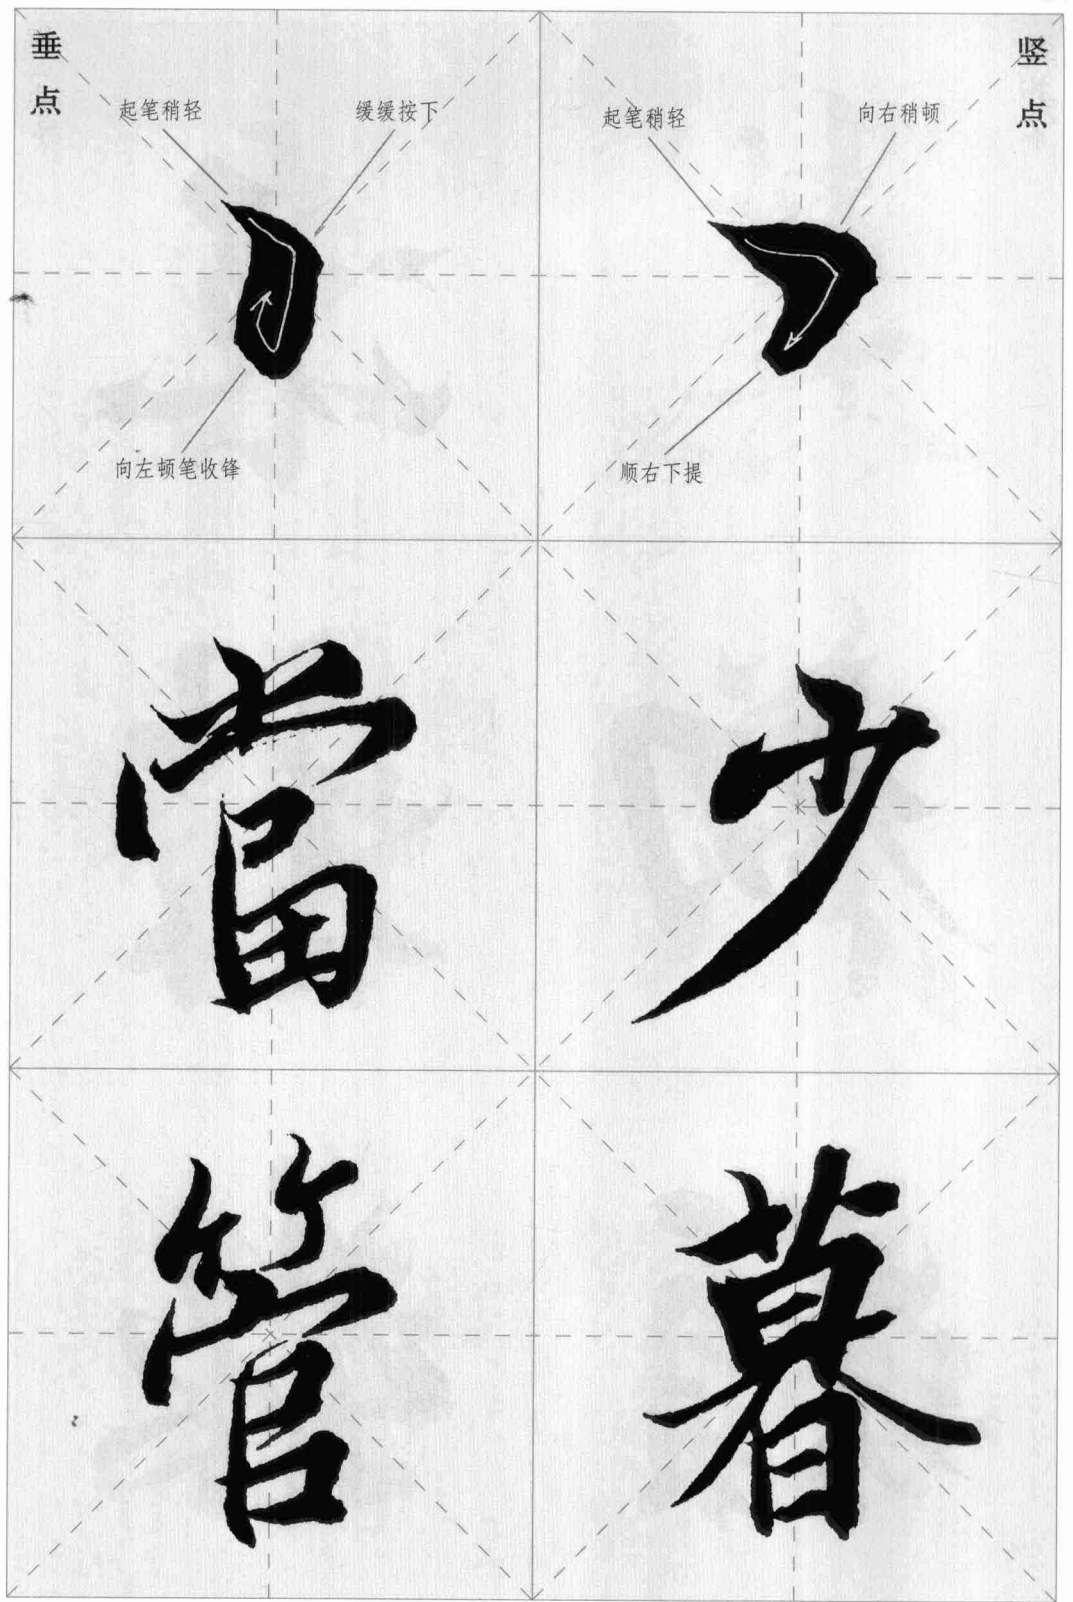 竖点
起笔稍轻
向右稍顿
顺右下提
少
暮
垂点
起笔稍轻
缓缓按下
向左顿笔收锋
當
管